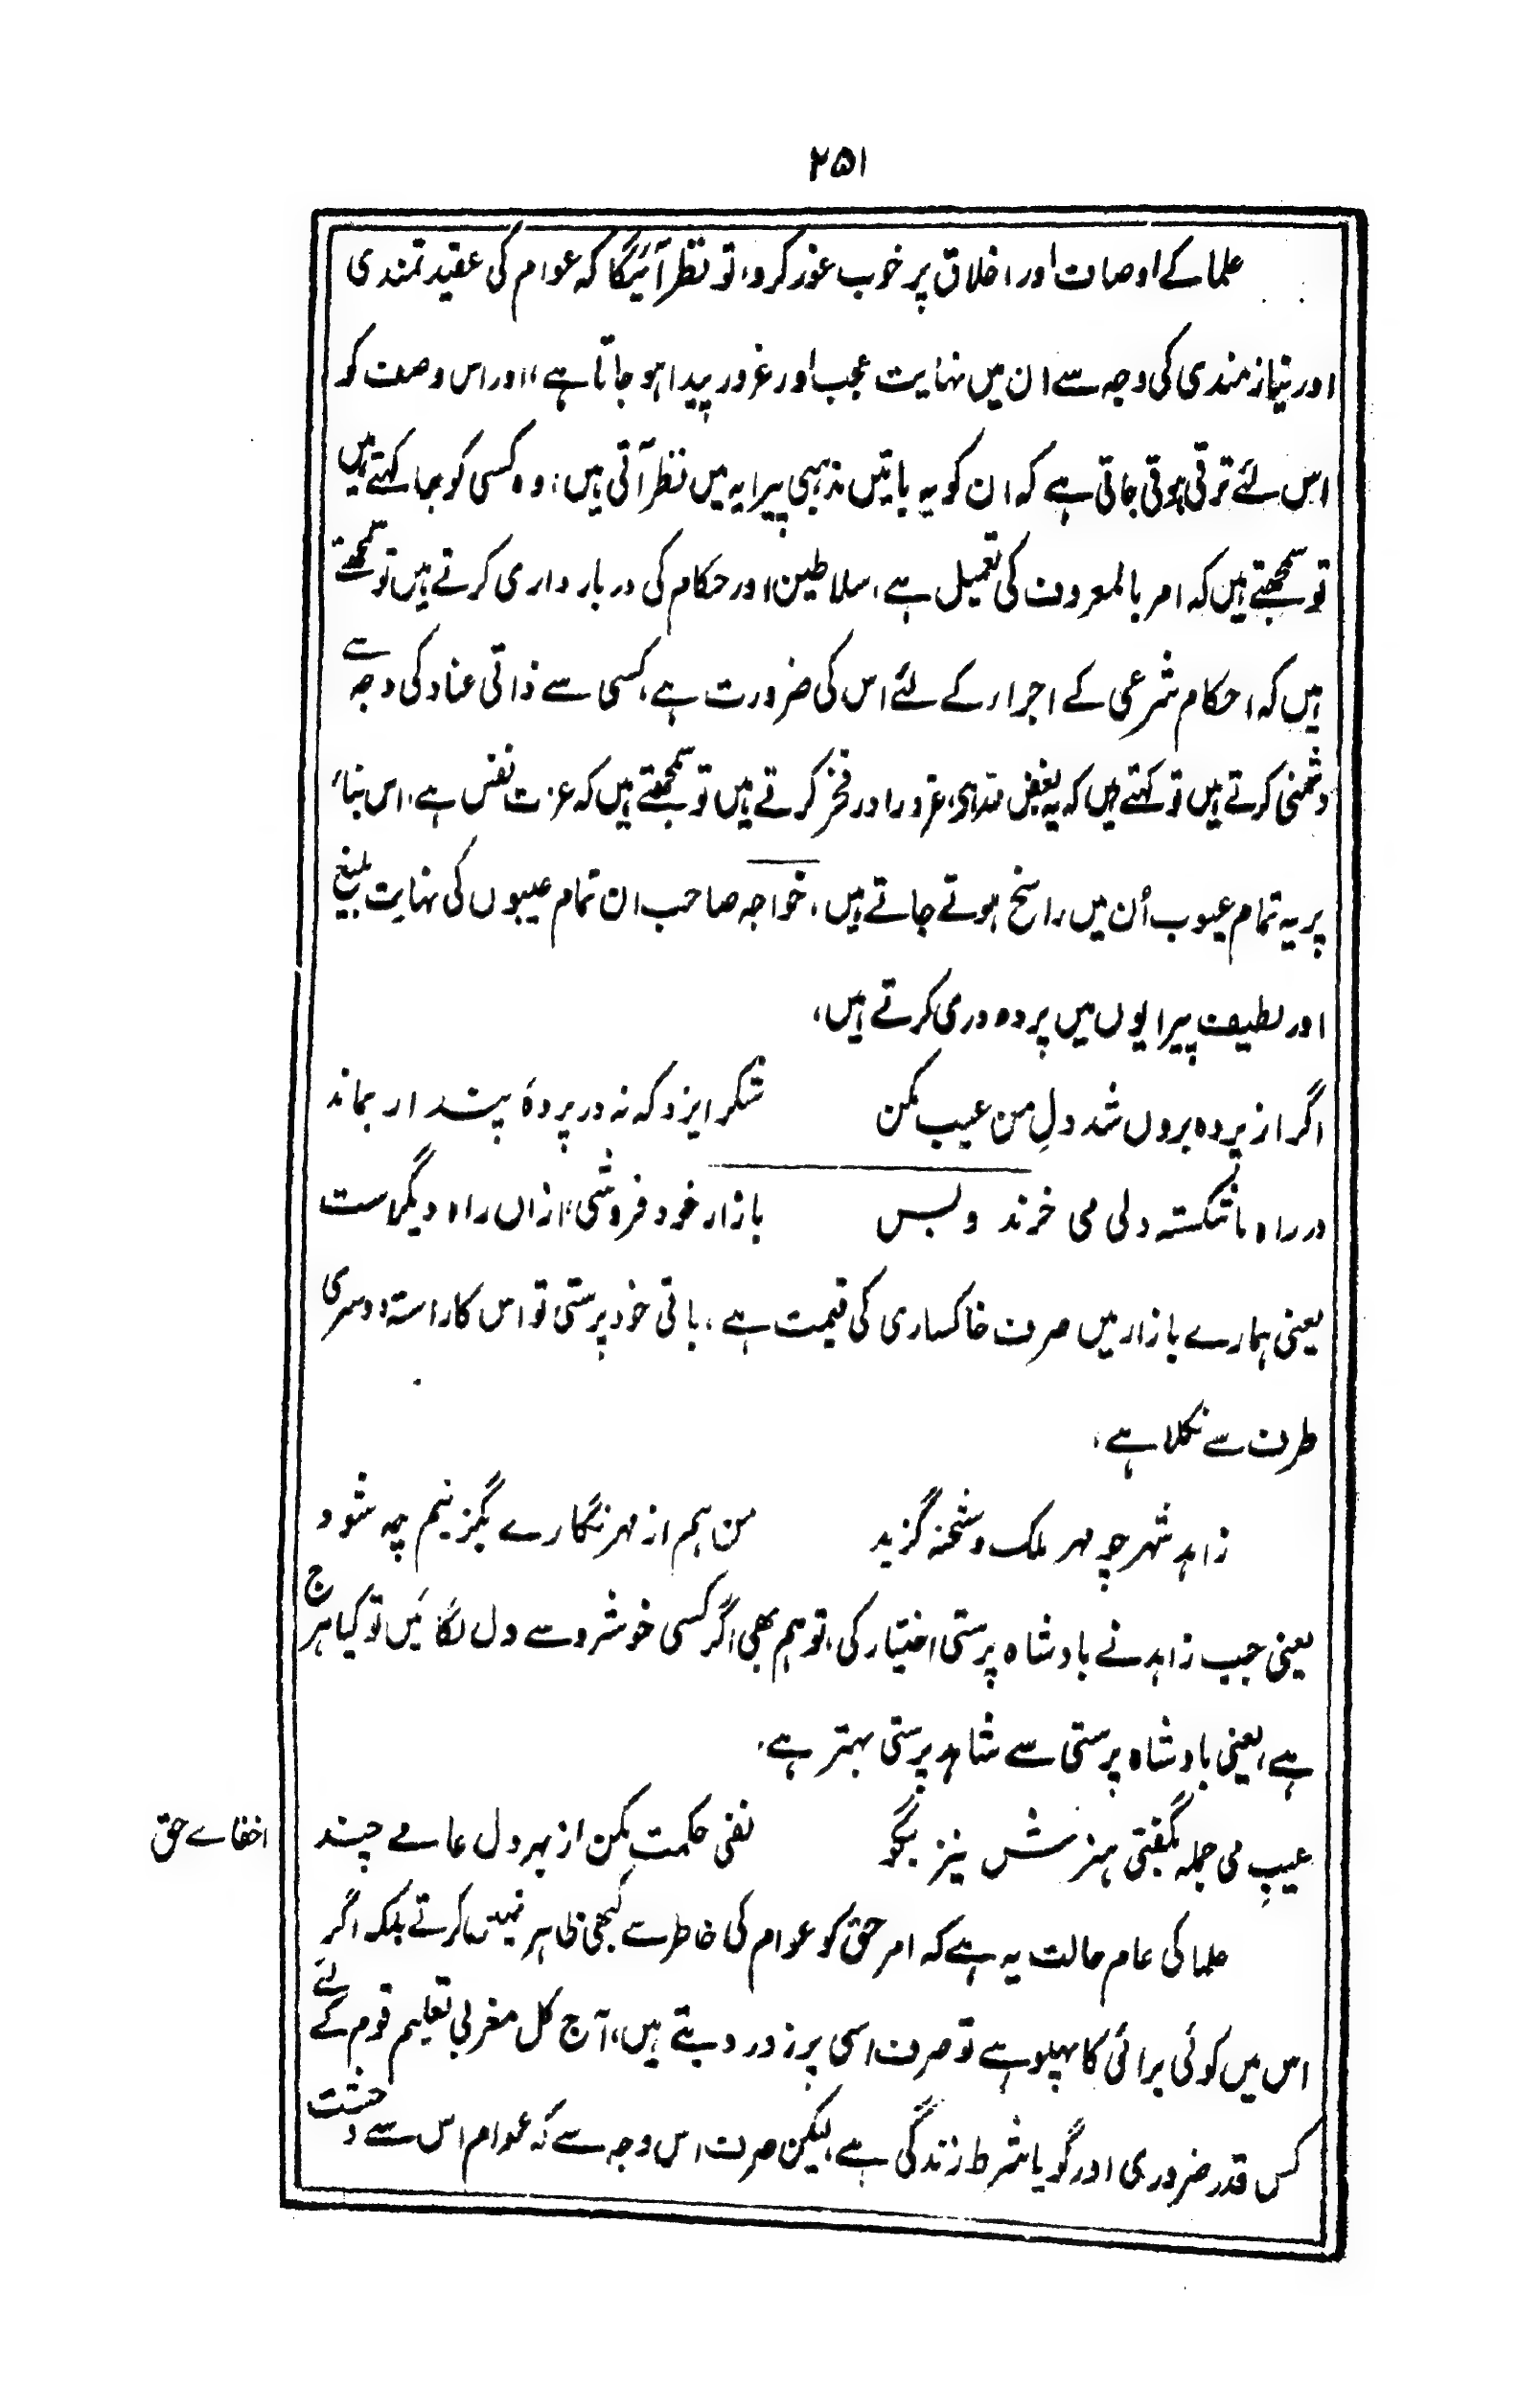 ۲۵۱
علما کے اوصاف اور اخلاق پر خوب غور کرو، تو نظر آئیگا کہ عوام کی عقیدتمندی
اور نیازمندی کی وجہ سے ان میں نہایت عجب اور غرور پیدا ہو جاتا ہے، اور اس وصف کو
اس لئے ترقی ہوتی جاتی ہے کہ ان کو یہ باتیں مذہبی پیرایہ میں نظر آتی ہیں، وہ کسی کو برا کہتے ہیں
تو سمجھتے ہیں کہ امر بالمعروف کی تعمیل ہے، سلاطین اور حکام کی درباداری کرتے ہیں تو سمجھتے
ہیں کہ احکام شرعی کے اجرار کے لئے اس کی ضرورت ہے، کسی سے ذاتی عناد کی وجہ سے
دشمنی کرتے ہیں تو کہتے ہیں کہ یہ بغض للہ ہی، غرور اور فخر کرتے ہیں تو سمجھتے ہیں کہ عزت نفس ہے، اس بناء
پر یہ تمام عیوب اُن میں راسخ ہوتے جاتے ہیں، خواجہ صاحب ان تمام عیبوں کی نہایت بلیغ
اور لطیف پیرایوں میں پردہ دری کرتے ہیں،
اگر از پردہ بروں شد دلِ من عیب مکن شکر ایزد کہ نہ در پردۂ پندار بماند
در راہ ما شکستہ دلی می خرند و بس بازار خود فروشی، ازاں راہ دیگرست
یعنی ہمارے بازار میں صرف خاکساری کی قیمت ہے، باقی خود پرستی تو اس کا راستہ دوسری
طرف سے نکلا ہے،
زاہد شہر چو مہر ملک و شحنہ گزید من ہم از مہر نگارے بگزینم چہ شود
یعنی جب زاہد نے بادشاہ پرستی اختیار کی، تو ہم بھی اگر کسی خوشرو سے دل لگائیں تو کیا ہرج
ہے، یعنی بادشاہ پرستی سے شاہد پرستی بہتر ہے،
عیبِ می جملہ بگفتی ہنرش نیز بگو نفی حکمت مکن از بہر دل عامے چند
اخفاے حق
علما کی عام حالت یہ ہے کہ امر حق کو عوام کی خاطر سے کبھی ظاہر نہیں کرتے بلکہ اگر
اس میں کوئی برائی کا پہلو ہے تو صرف اسی پر زور دیتے ہیں، آج کل مغربی تعلیم قوم کے لئے
کس قدر ضروری اور گویا شرط زندگی ہے، لیکن صرف اس وجہ سے کہ عوام اس سے وحشت